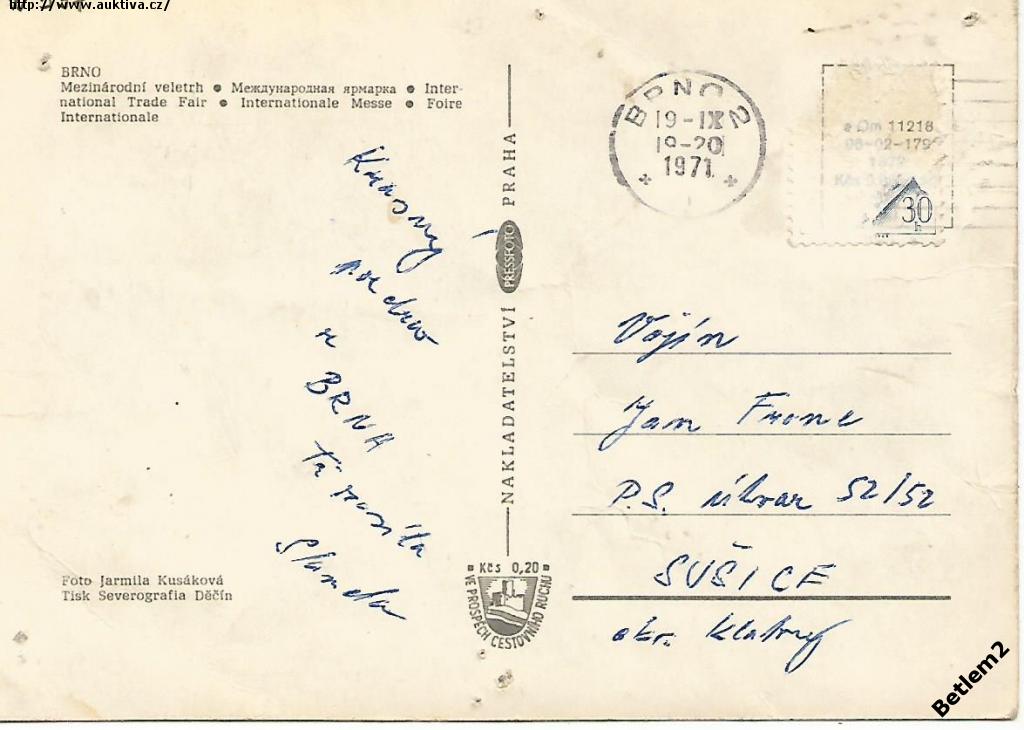 http://www.auktiva.cz/
BRNO
Mezinárodní veletrh ● Международная ярмарка ● Inter-
national Trade Fair ● Internationale Messe ● Foire
Internationale
BRNO 2
19-IX
19-20
1971
a Om 11218
30
h
Krásný
z BRNA
Ti
NAKLADATELSTVÍ PRESSFOTO PRAHA
Vojín
Jan Franc
P.S. útvar 52/52
SUŠICE
okr. Klatovy
Foto Jarmila Kusáková
Tisk Severografia Děčín
Kčs 0,20
VE PROSPĚCH CESTOVNÍHO RUCHU
Betlem2